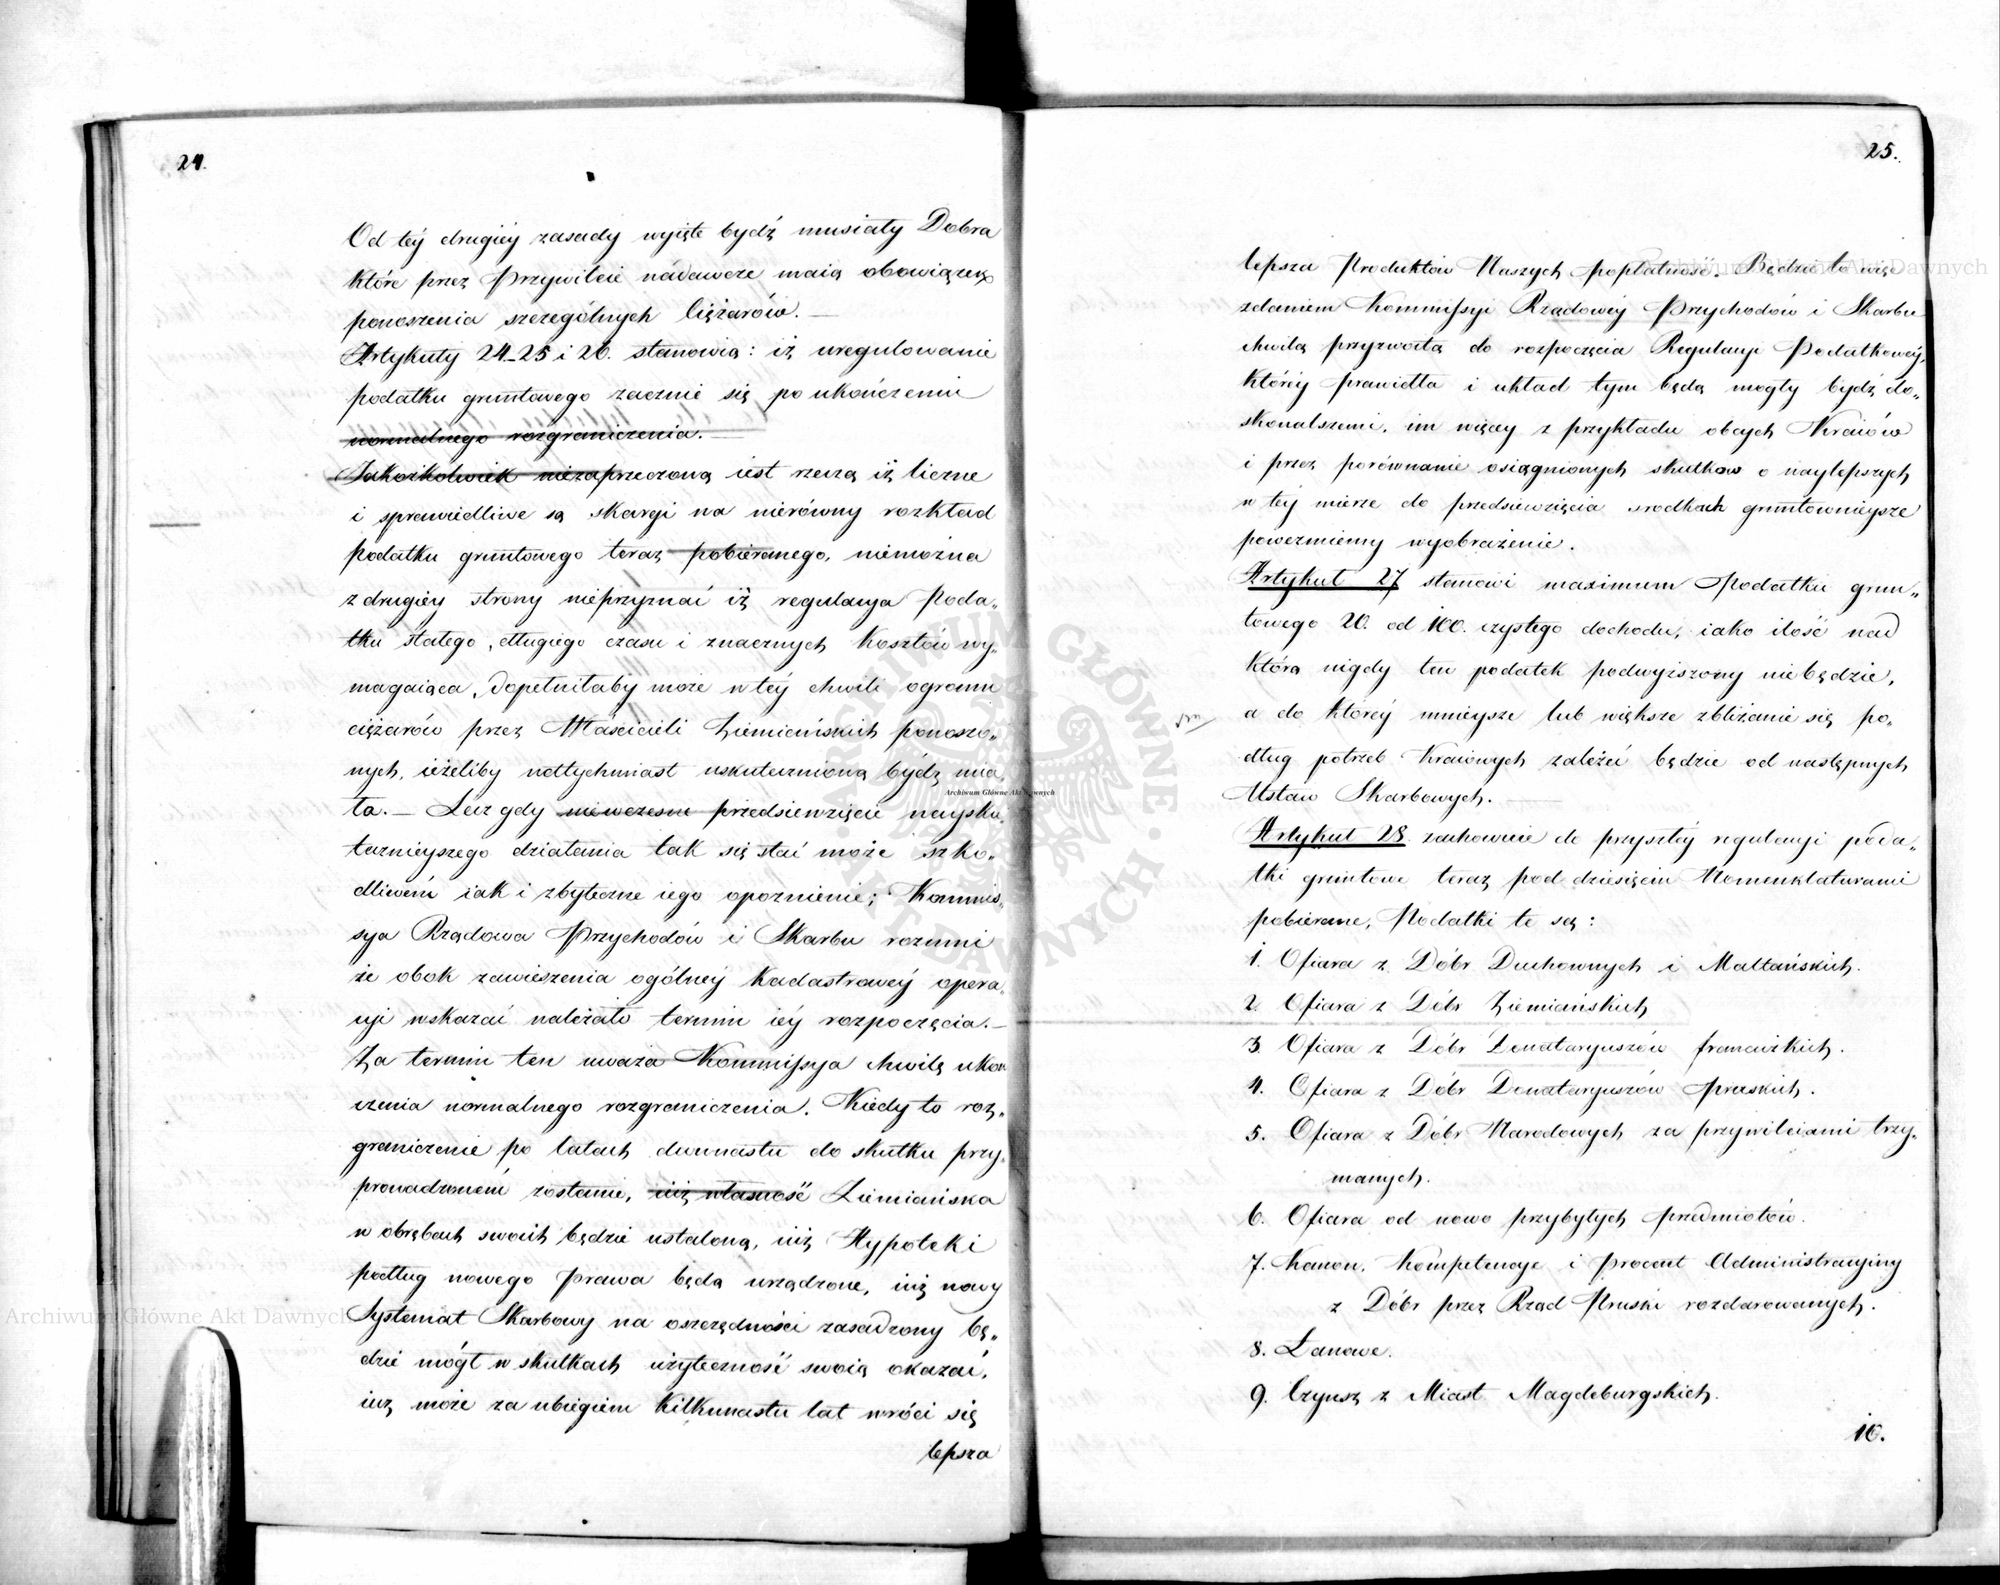 24.
Od tey drugiey zasady wyięte bydź musiały Dobra
które przez Przywileie nadawcze maią obowiązek
ponoszenia szczególnych Ciężarów. —
Artykuły 24_25 i 26. stanowią: iż uregulowanie
podatku gruntowego zacznie się po ukończeniu
normalnego rozgraniczenia. —
Jakożkolwiek niezaprzeczoną iest rzeczą iż liczne
i sprawiedliwe są skargi na nierówny rozkład
podatku gruntowego teraz pobieranego, niemożna
z drugiey strony nieprzyznać iż regulacya Poda„
tku stałego, długiego czasu i znacznych kosztów wy„
magaiąca, dopełniłaby może w tey chwili ogromu
ciężarów przez Właścicieli Ziemiańskich ponoszo„
nych, ieżeliby natychmiast uskutecznioną bydź mia„
ła. — Lecz gdy niewczesne przedsięwzięcie naysku„
tecznieyszego działania tak się stać może szko„
dliwém iak i zbyteczne iego opoznienie; Kommis„
sya Rządowa Przychodów i Skarbu rozumi
że obok zawieszenia ogólney Kadastrowey opera„
cyi wskazać należało termin iéy rozpoczęcia. —
Za termin ten uważa Kommissya chwilę ukoń
czenia normalnego rozgraniczenia. Kiedy to roz„
graniczenie po latach dwunastu do skutku przy„
prowadzoném zostanie, iuż własność Ziemiańska
w obrębach swoich będzie ustaloną, iuż Hypoteki
podług nowego Prawa będą urządzone, iuż nowy
Systemat Skarbowy na oszczędności zasadzony bę„
dzie mógł w skutkach użyteczność swoią okazać,
iuż może za ubiegiem kilkunastu lat wróci się
lepsza
25.
lepsza Produktów Naszych popłatność. Będzie to więc
zdaniem Kommissyi Rządowey Przychodów i Skarbu
chwilą przyzwoitą do rozpoczęcia Regulacyi Podatkowey,
którey prawidła i układ tym będą mogły bydź do„
skonalszemi, im więcey z przykładu obcych Kraiów
i przez porównanie osiągnionych skutków o naylepszych
w tey mierze do przedsięwzięcia srodkach gruntownieysze
poweźmiemy wyobrażenie.
Artykuł 27 stanowi maximum Podatku grun„
towego 20. od 100. czystego dochodu, iako ilość nad
którą nigdy ten podatek podwyższony nie będzie,
a do którey mnieysze lub większe zbliżanie się po„
dług potrzeb Kraiowych zależeć będzie od następnych
Ustaw Skarbowych. —
Artykuł 28. zachowuie do przyszłey regulacyi poda„
tki gruntowe teraz pod dziesięciu Nomenklaturami
pobierane, Podatki te są:
1. Ofiara z Dóbr Duchownych i Maltańskich.
2. Ofiara z Dóbr Ziemiańskich
3. Ofiara z Dóbr Donataryuszów francuzkich.
4. Ofiara z Dóbr Donataryuszów Pruskich.
5. Ofiara z Dóbr Narodowych za przywileiami trzy„
manych.
6. Ofiara od nowo przybyłych przedmiotów.
7. Kanon, Kompetencye i Procent Administracyiny
z Dóbr przez Rząd Pruski rozdarowanych.
8. Łanowe.
9. Czynsz z Miast Magdeburgskich.
10.
Archiwum Główne Akt Dawnych
Archiwum Główne Akt Dawnych
Archiwum Główne Akt Dawnych
ARCHIWUM GŁÓWNE AKT DAWNYCH